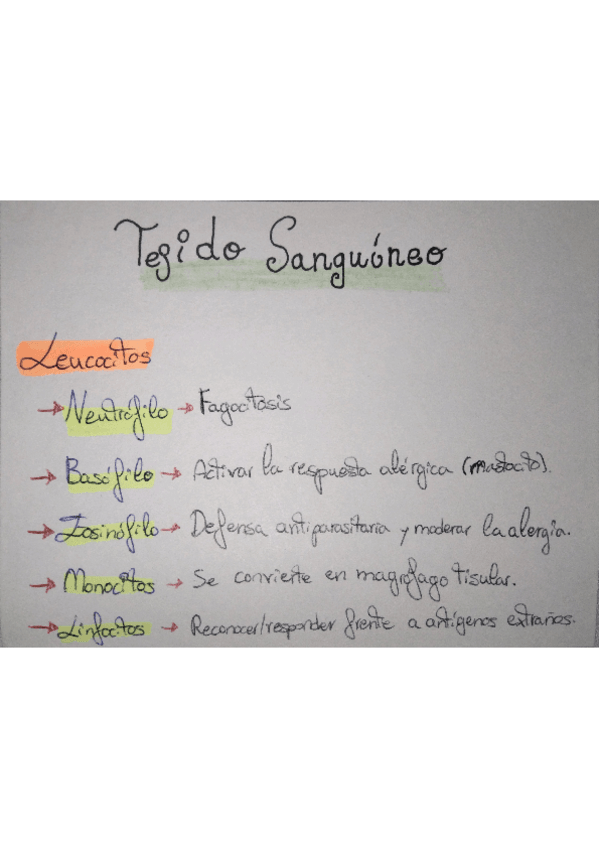 Tejido Sanguíneo
Leucocitos
→ Neutrófilo → Fagocitosis
→ Basófilo → Activar la respuesta alérgica (mastocito).
→ Eosinófilo → Defensa antiparasitaria y moderar la alergia.
→ Monocitos → Se convierte en magrófago tisular.
→ Linfocitos → Reconocer/responder frente a antígenos extraños.